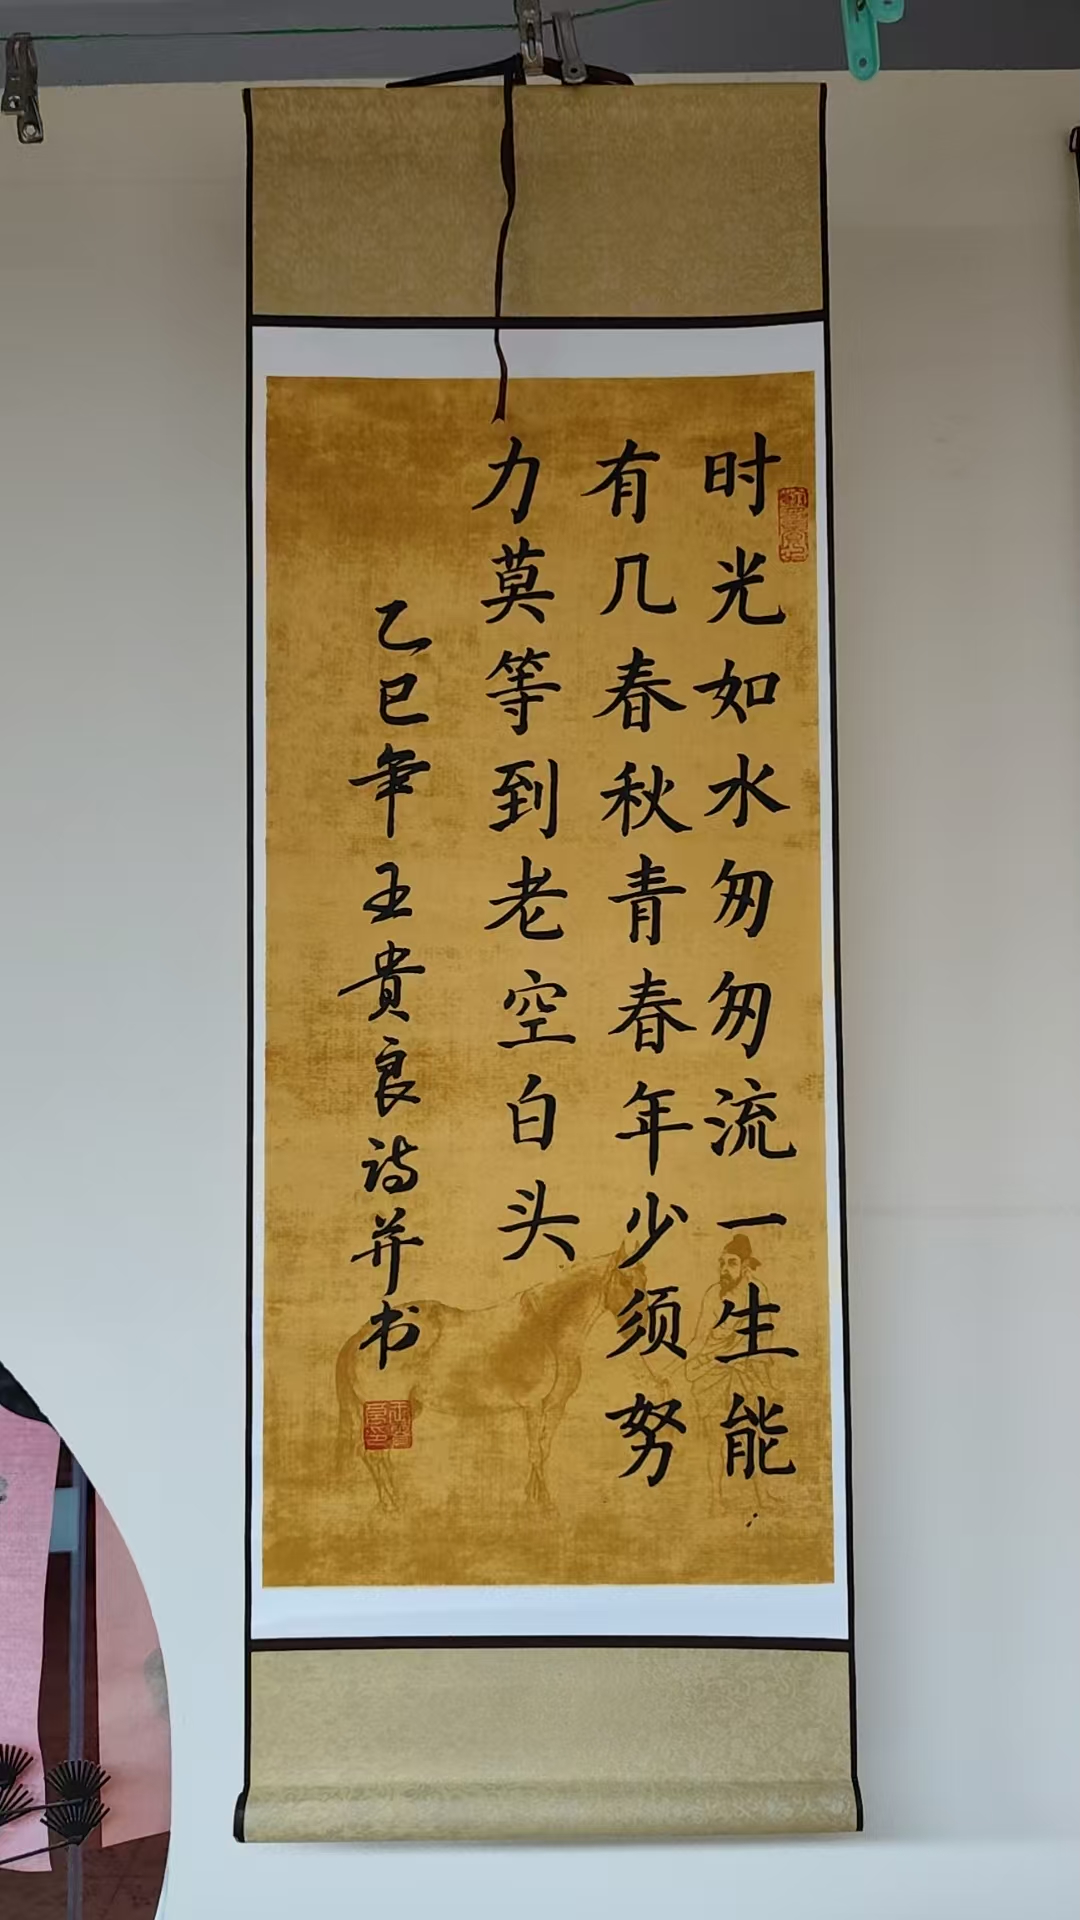 时光如水匆匆流一生能
有几春秋青春年少须努
力莫等到老空白头
乙巳年王贵良诗并书